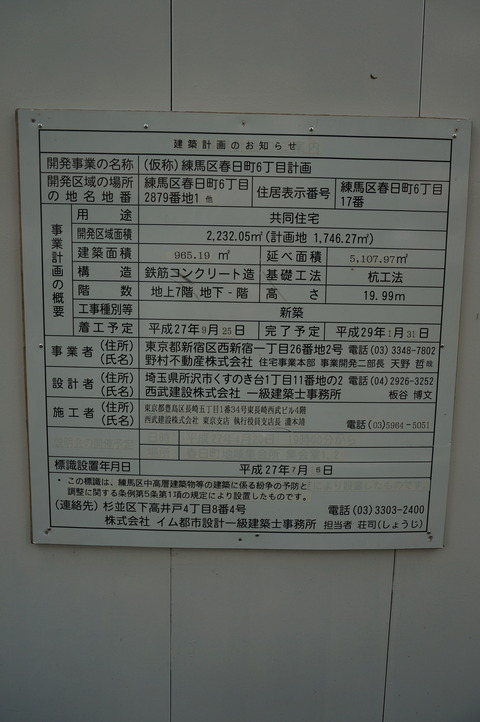 建築計画のお知らせ
開発事業の名称 (仮称)練馬区春日町6丁目計画
開発区域の場所の地名地番 練馬区春日町6丁目2879番地1 他 住居表示番号 練馬区春日町6丁目17番
事業計画の概要
用途 共同住宅
開発区域面積 2,232.05㎡(計画地 1,746.27㎡)
建築面積 965.19 ㎡ 延べ面積 5,107.97㎡
構造 鉄筋コンクリート造 基礎工法 杭工法
階数 地上7階 地下-階 高さ 19.99m
工事種別等 新築
着工予定 平成27年9月25日 完了予定 平成29年1月31日
事業者 (住所) 東京都新宿区西新宿一丁目26番地2号 電話(03)3348-7802
(氏名) 野村不動産株式会社 住宅事業本部 事業開発二部長 天野 哲哉
設計者 (住所) 埼玉県所沢市くすのき台1丁目11番地の2 電話(04)2926-3252
(氏名) 西武建設株式会社 一級建築士事務所 板谷 博文
施工者 (住所) 東京都豊島区長崎五丁目1番34号東長崎西武ビル4階
(氏名) 西武建設株式会社 東京支店 執行役員支店長 瀧本靖 電話(03)5964-5051
標識設置年月日 平成27年7月6日
* この標識は、練馬区中高層建築物等の建築に係る紛争の予防と
調整に関する条例第5条第1項の規定により設置したものです。
(連絡先) 杉並区下高井戸4丁目8番4号 電話(03)3303-2400
株式会社 イム都市設計一級建築士事務所 担当者 荘司(しょうじ)